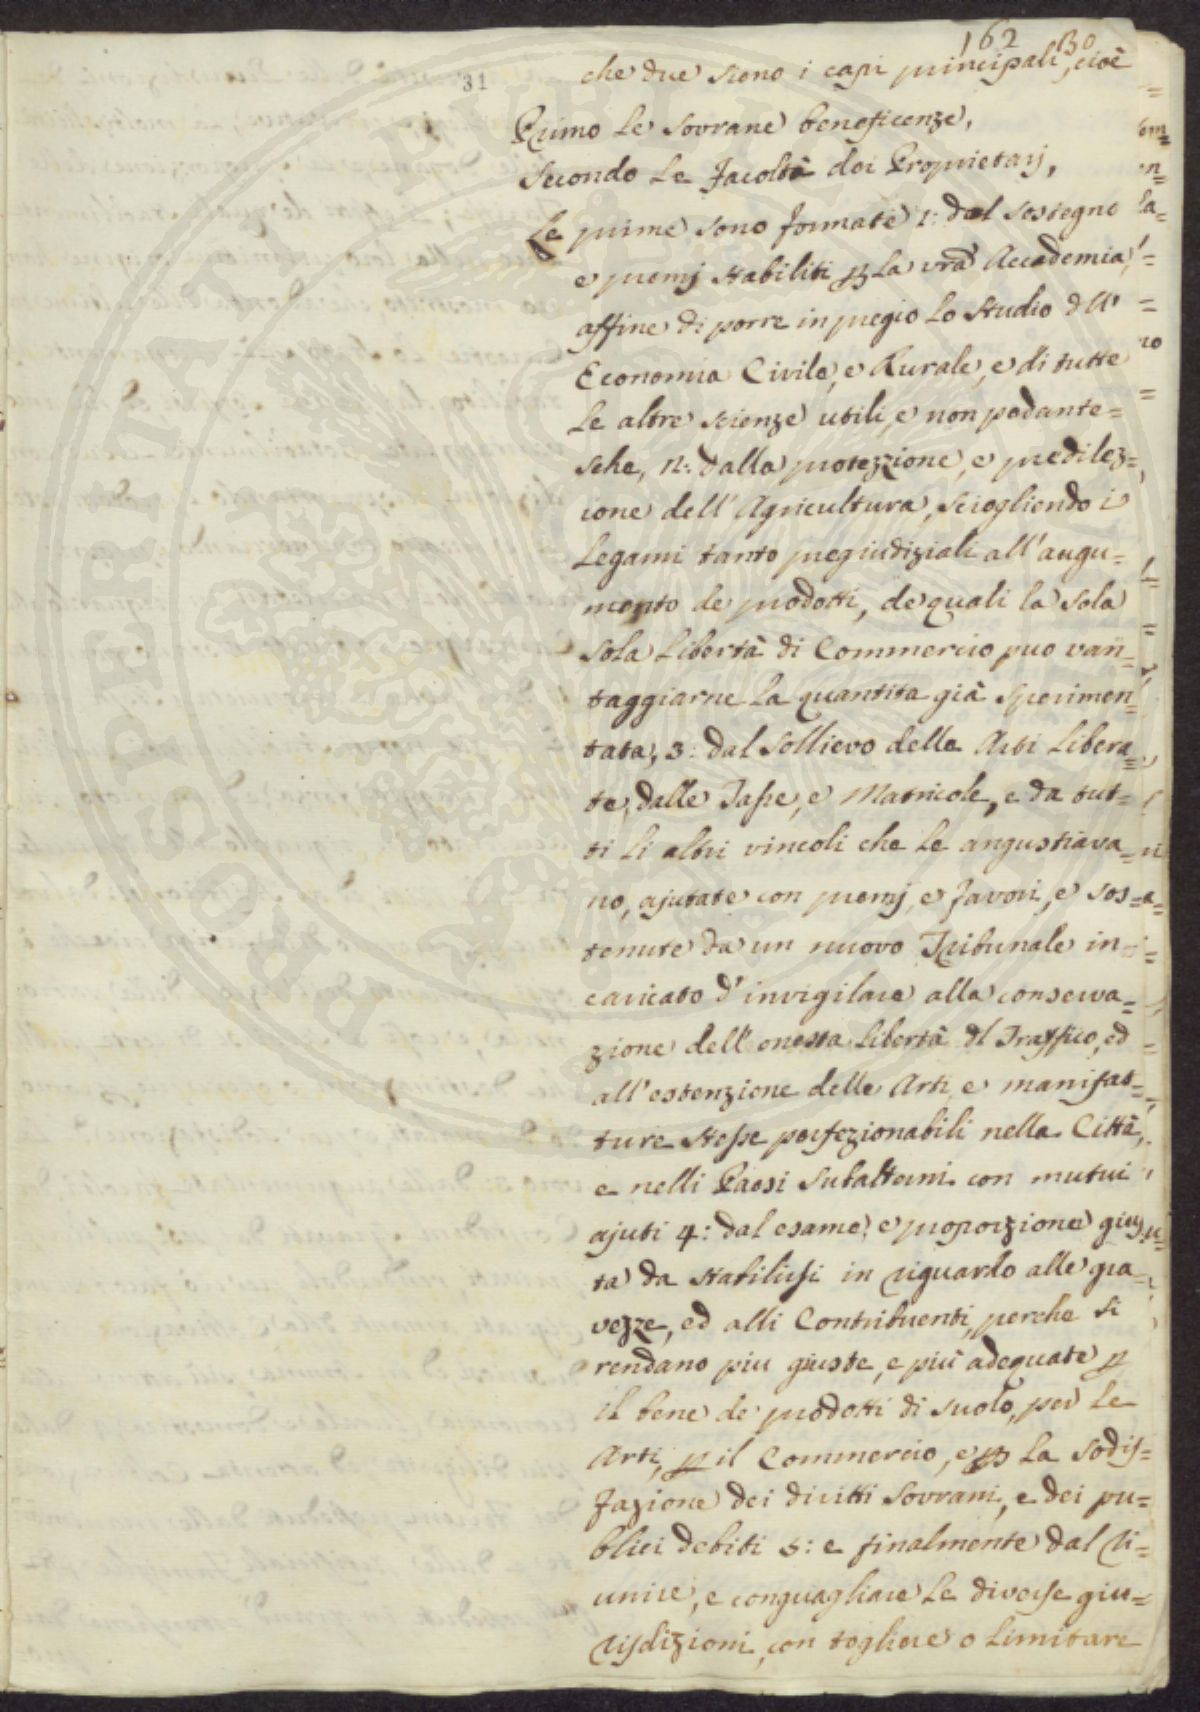 162 130
31
che due sieno i capi principali, cioè
Primo Le Sovrane beneficenze,
Secondo Le Facoltà dei Proprietarj,
Le prime sono formate 1: dal sostegno
e premj stabiliti p La vrã Accademia,
affine di porre in pregio Lo Studio dll'
Economia Civile, e Rurale, e di tutte
Le altre scienze utili, e non pedante=
sche, 2: dalla protezzione, e predilez=
ione dell' Agricultura, sciogliendo i
Legami tanto pregiudiziali all'augu=
mento de prodotti, de quali la sola
sola Libertà di Commercio puo van=
taggiarne La quantita già sperimen=
tata, 3: dal sollievo delle Arti Libera=
te, dalle Tasse, e Matricole, e da tut=
ti Li altri vincoli che Le angustiava=
no, ajutate con premj, e favori, e sos=
tenute da un nuovo Tribunale in=
caricato d'invigilare alla conserva=
zione dell' onesta Libertà dl Traffico, ed
all'estenzione delle Arti, e manifat=
ture stesse perfezionabili nella Città,
e nelli Paesi Subalterni con mutui
ajuti 4: dal esame, e proporzione gius=
ta da stabilirsi in riguardo alle gra=
vezze, ed alli Contribuenti, perche si
rendano piu giuste, e più adequate p
il bene de prodotti di suolo, per Le
Arti, p il Commercio, e p La sodis=
fazione dei diritti Sovrani, e dei pu=
blici debiti 5: e finalmente dal ri=
unire, e conguagliare Le diverse giu=
risdizioni, con togliere o Limitare
PROSPERITATI PUBLICAE